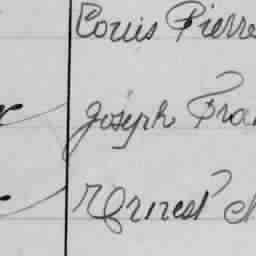 Louis Pierre
Joseph Fra
Ernest